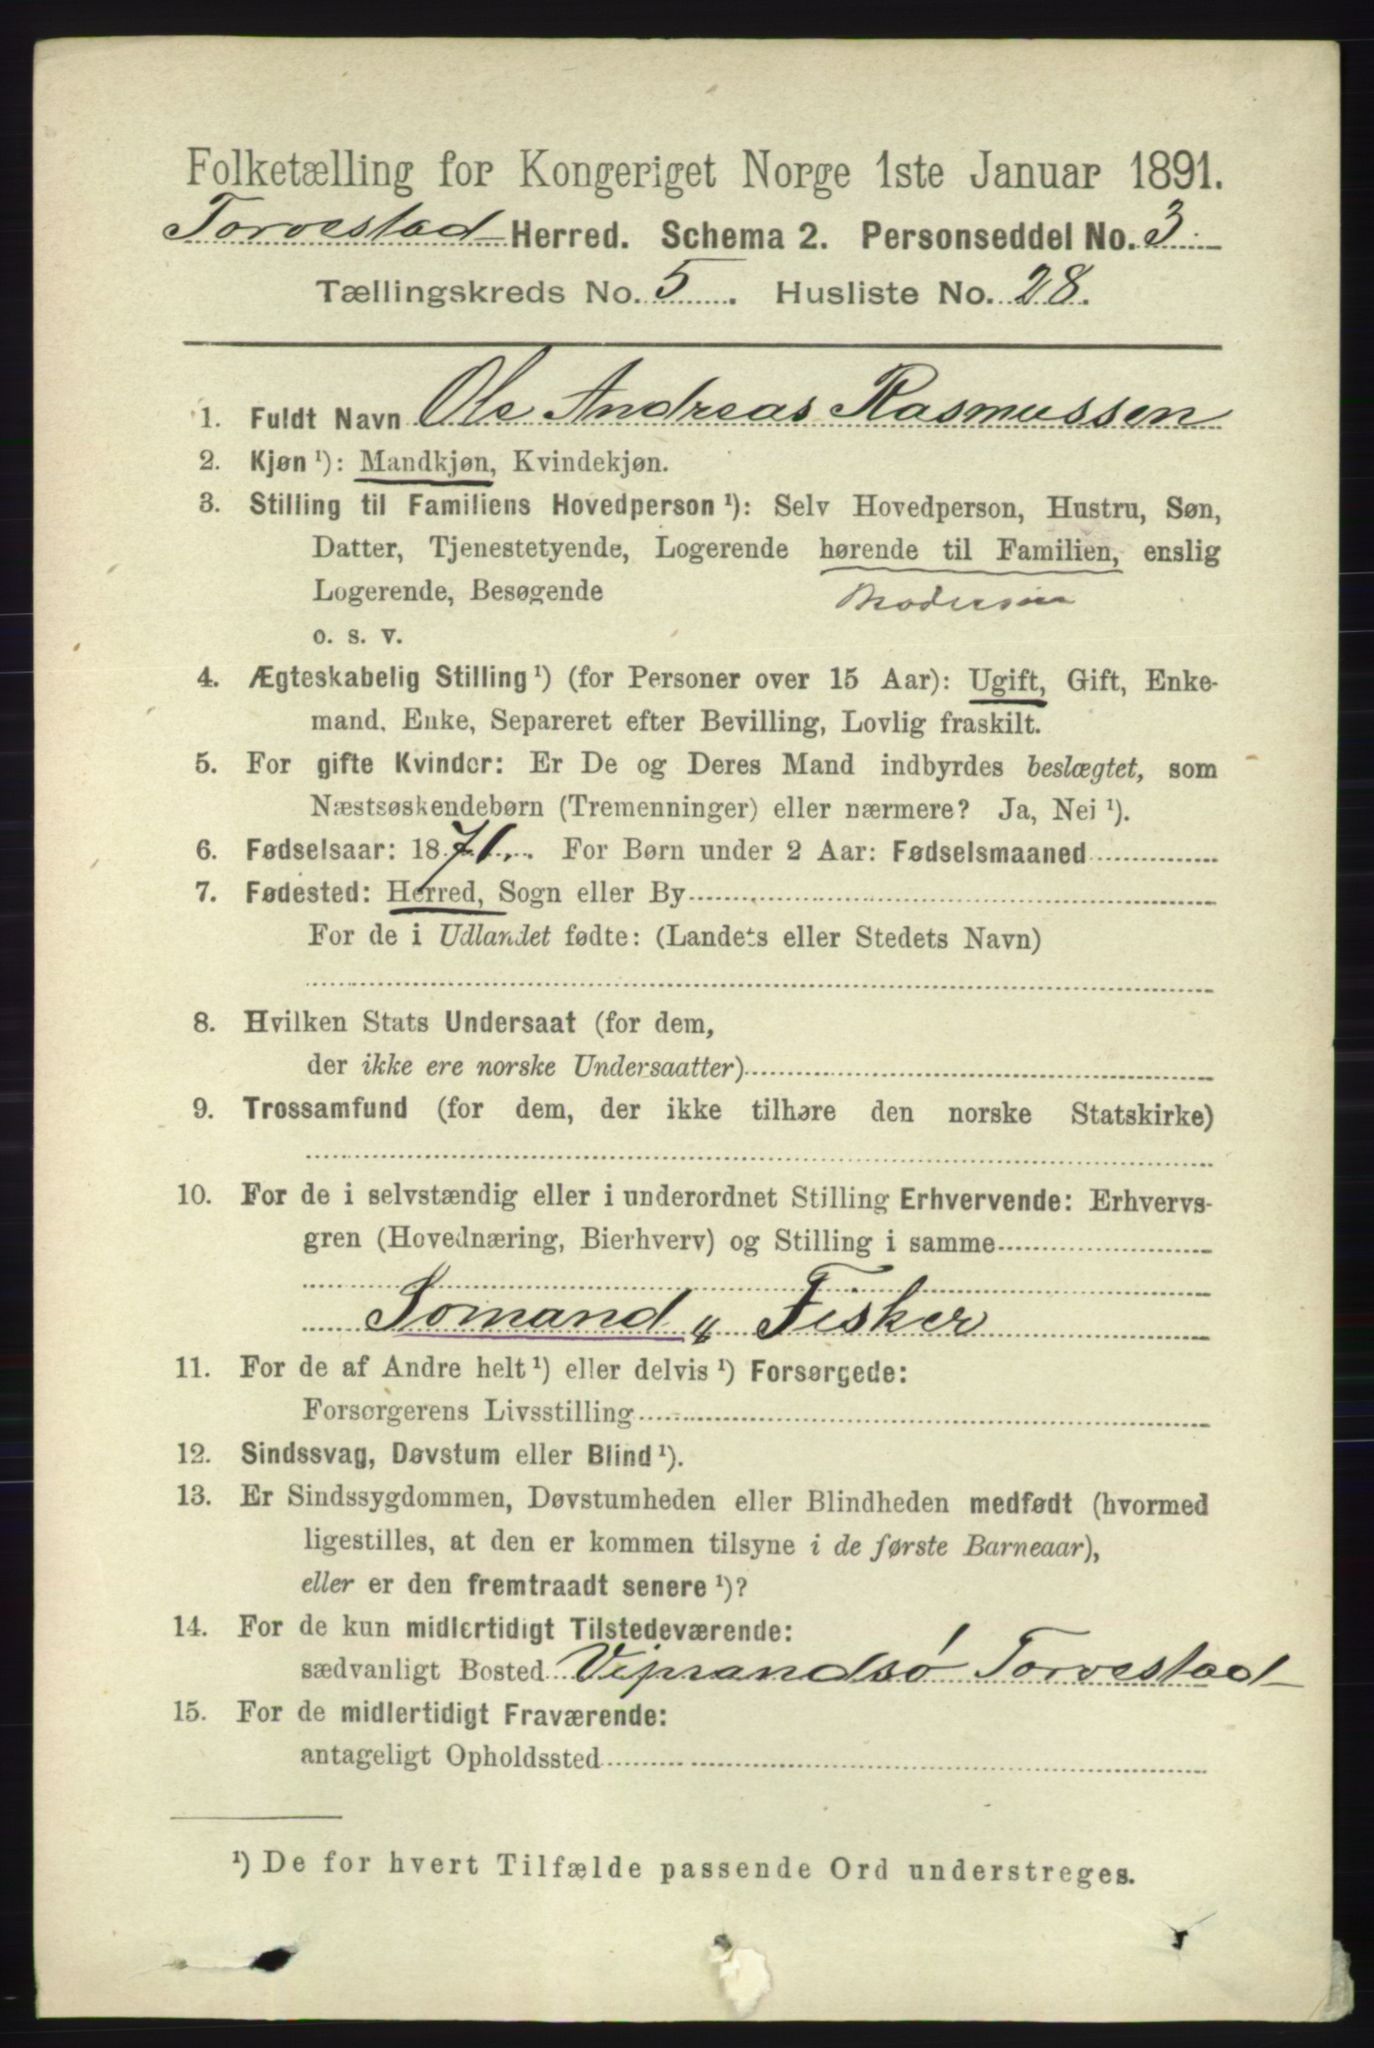 Folketælling for Kongeriget Norge 1ste Januar 1891.
Torvestad Herred. Schema 2. Personseddel No. 3
Tællingskreds No. 5. Husliste No. 28.
1. Fuldt Navn Ole Andreas Rasmussen
2. Kjøn ¹): Mandkjøn, Kvindekjøn.
3. Stilling til Familiens Hovedperson ¹): Selv Hovedperson, Hustru, Søn,
Datter, Tjenestetyende, Logerende hørende til Familien, enslig
Logerende, Besøgende
o. s. v.
4. Ægteskabelig Stilling ¹) (for Personer over 15 Aar): Ugift, Gift, Enke-
mand, Enke, Separeret efter Bevilling, Lovlig fraskilt.
5. For gifte Kvinder: Er De og Deres Mand indbyrdes beslægtet, som
Næstsøskendebørn (Tremenninger) eller nærmere? Ja, Nei ¹).
6. Fødselsaar: 1871. For Børn under 2 Aar: Fødselsmaaned
7. Fødested: Herred, Sogn eller By
For de i Udlandet fødte: (Landets eller Stedets Navn)
8. Hvilken Stats Undersaat (for dem,
der ikke ere norske Undersaatter)
9. Trossamfund (for dem, der ikke tilhøre den norske Statskirke)
10. For de i selvstændig eller i underordnet Stilling Erhvervende: Erhvervs-
gren (Hovednæring, Bierhverv) og Stilling i samme
Somand & Fisker
11. For de af Andre helt ¹) eller delvis ¹) Forsørgede:
Forsørgerens Livsstilling
12. Sindssvag, Døvstum eller Blind ¹).
13. Er Sindssygdommen, Døvstumheden eller Blindheden medfødt (hvormed
ligestilles, at den er kommen tilsyne i de første Barneaar),
eller er den fremtraadt senere ¹)?
14. For de kun midlertidigt Tilstedeværende:
sædvanligt Bosted Viprandsó Torvestad
15. For de midlertidigt Fraværende:
antageligt Opholdssted
¹) De for hvert Tilfælde passende Ord understreges.